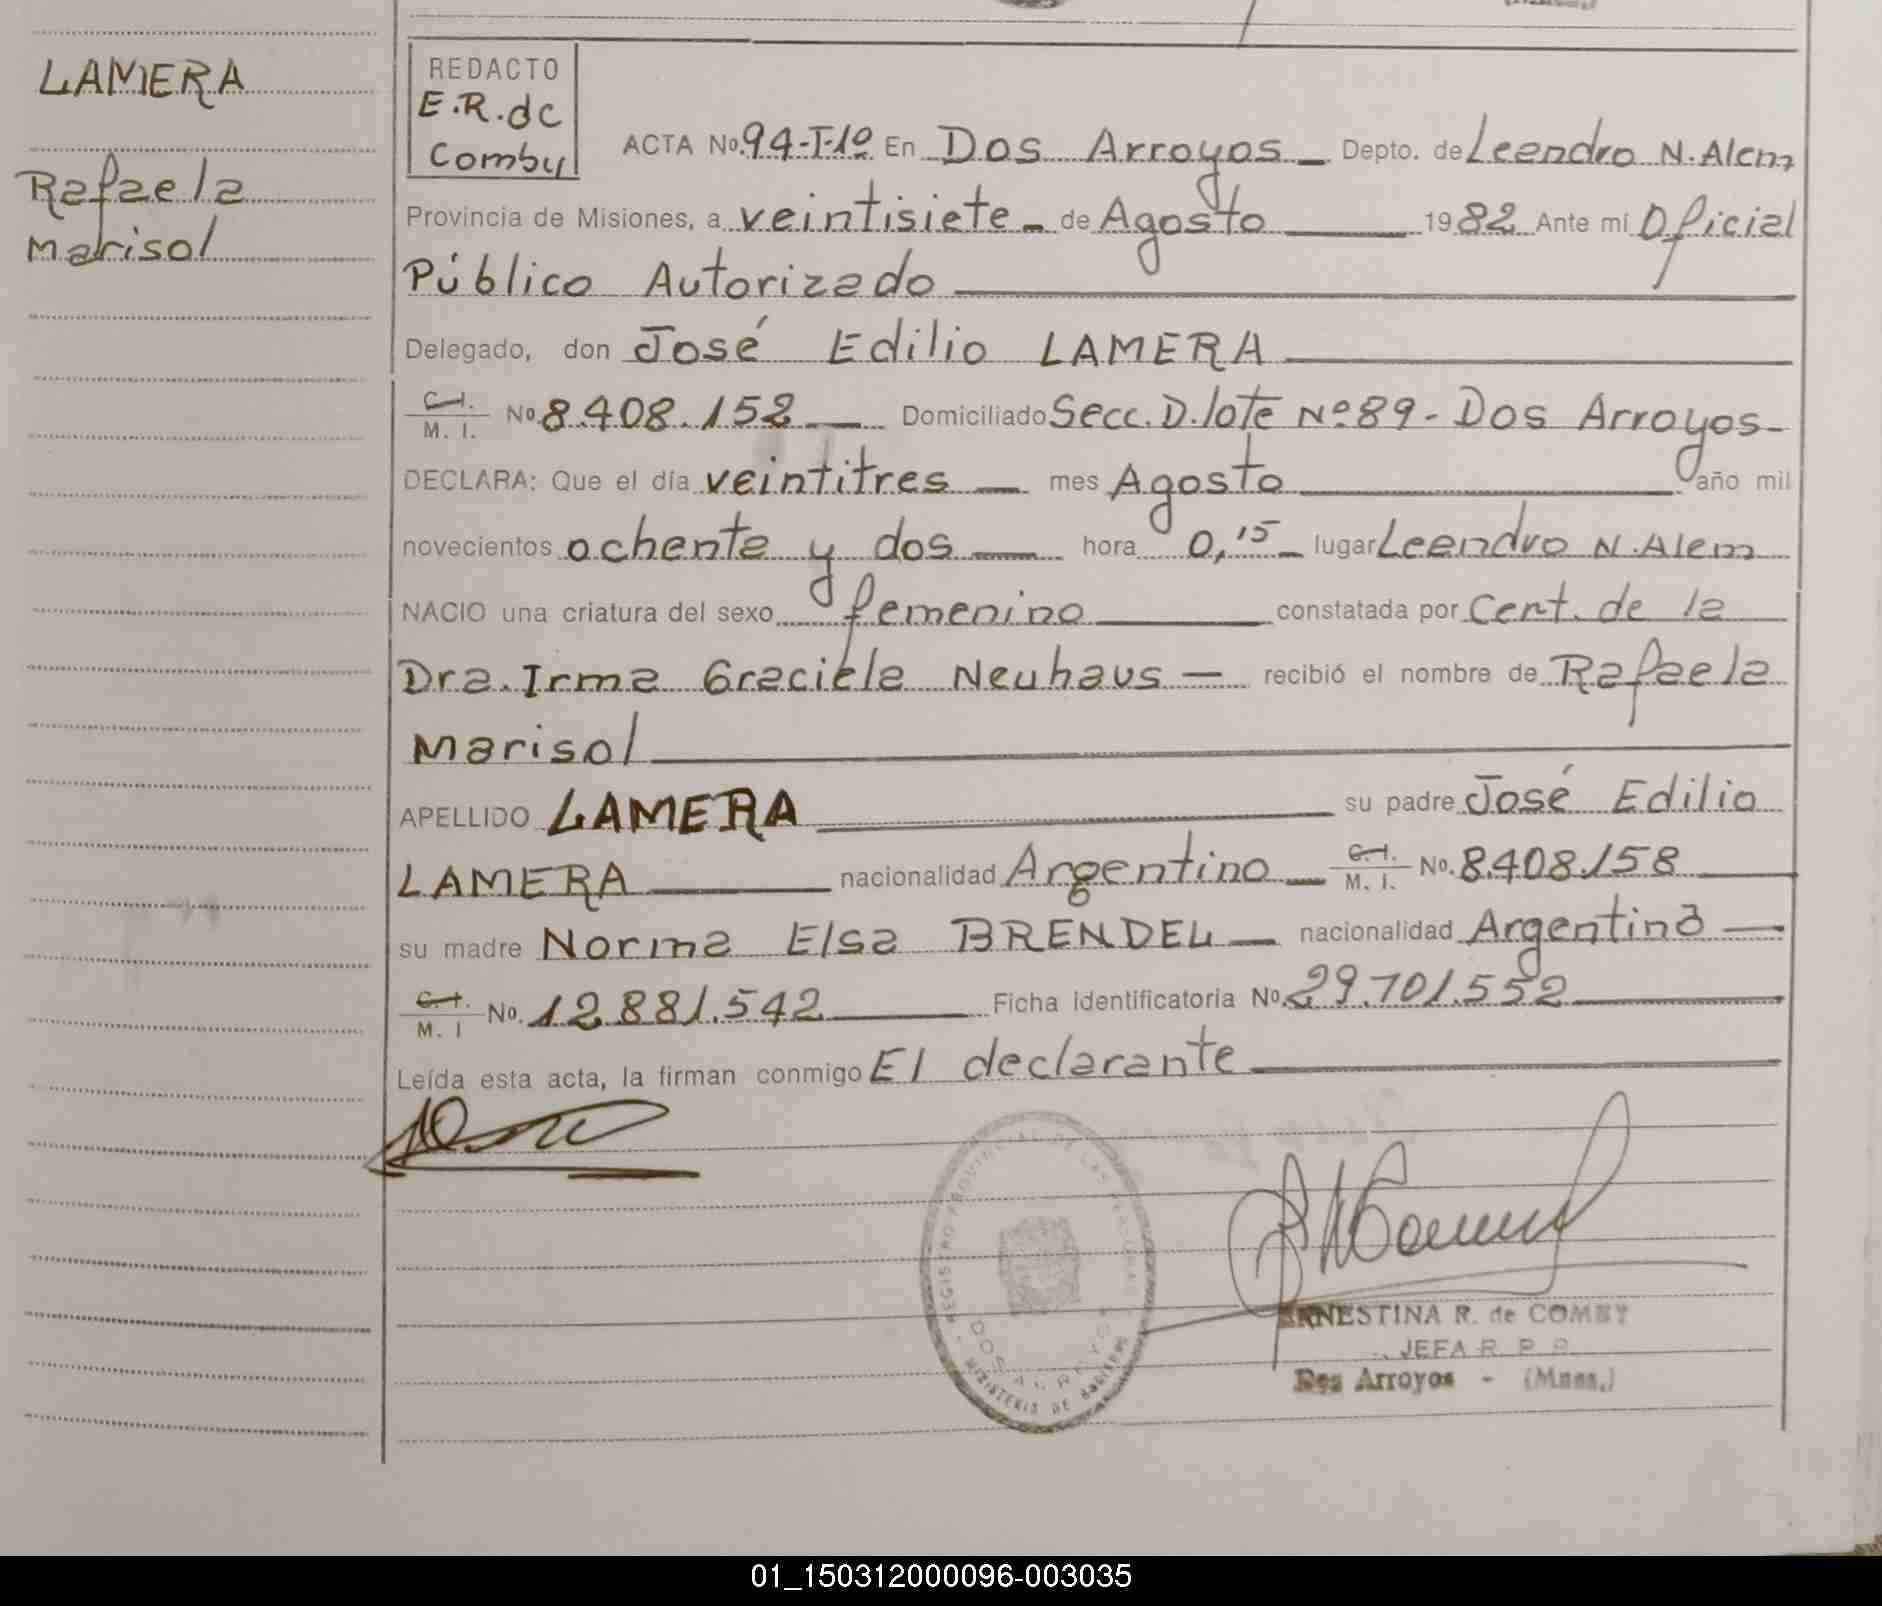 LAMERA
Rafaela
Marisol
REDACTO
E.R.de
Comby
ACTA No. 94-I-1º En Dos Arroyos Depto. de Leandro N. Alem
Provincia de Misiones, a veintisiete de Agosto 1982 Ante mí Oficial
Público Autorizado
Delegado, don José Edilio LAMERA
C.I.
M. I. No. 8.408.158 Domiciliado Secc. D. lote Nº 89 - Dos Arroyos-
DECLARA: Que el día veintitres mes Agosto año mil
novecientos ochenta y dos hora 0,15 lugar Leandro N. Alem
NACIO una criatura del sexo femenino constatada por Cert. de la
Dra. Irma Graciela Neuhaus recibió el nombre de Rafaela
Marisol
APELLIDO LAMERA su padre José Edilio
LAMERA nacionalidad Argentino C.I. M. I. No. 8.408.158
su madre Norma Elsa BRENDEL nacionalidad Argentina
C.I.
M. I No. 12.881.542 Ficha identificatoria No. 29.701.552
Leída esta acta, la firman conmigo El declarante
REGISTRO PROVINCIAL DE LAS PERSONAS
DOS ARROYOS
MINISTERIO DE GOBIERNO
ERNESTINA R. de COMBY
JEFA R. P. P.
Dos Arroyos - (Mnes.)
01_150312000096-003035